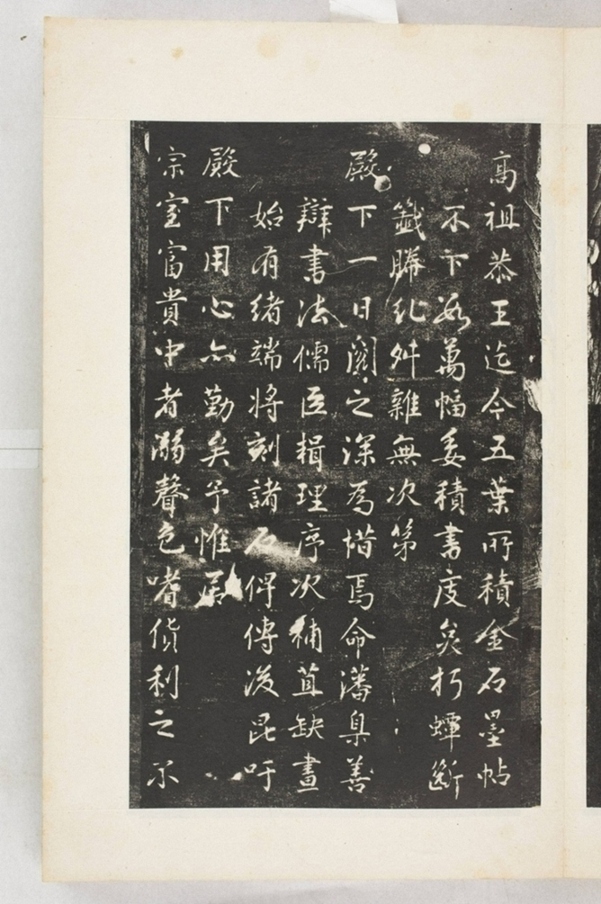 高祖恭王迄今五葉所積金石墨帖
不下數萬幅委積書庋炱朽蟫斷
籤勝紀舛雜無次第
殿下一日閱之深為惜焉命藩臬善
辯書法儒臣楫理序次補葺缺畫
始有緒端將刻諸石俾傳後昆吁
殿下用心亦勤矣予惟居
宗室富貴中者溺聲色嗜貨利之不